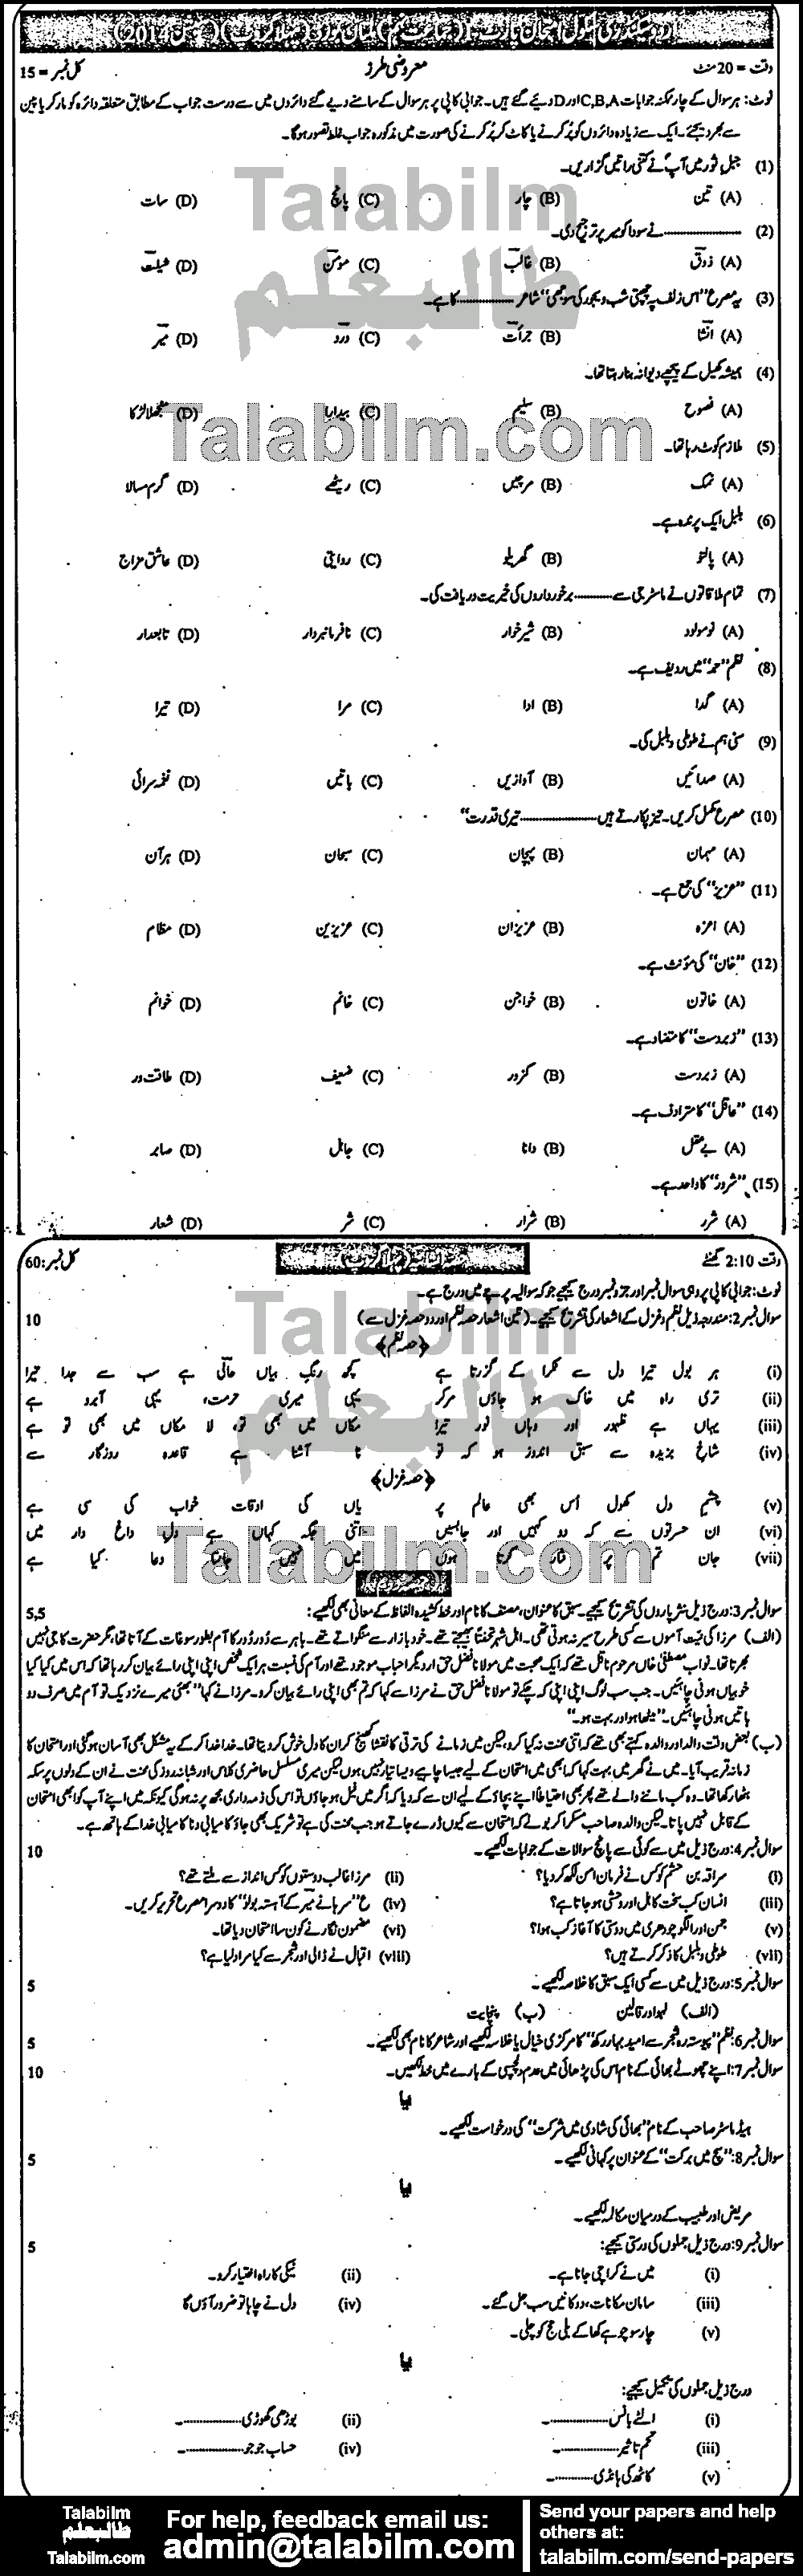 اردو سیکنڈری سکول امتحان پارٹ (جماعت نہم) ملتان بورڈ (پہلا گروپ) (سیشن 2014)
وقت = 20 منٹ معروضی طرز کل نمبر = 15
نوٹ: ہر سوال کے چار ممکنہ جوابات C,B,A اور D دیئے گئے ہیں۔ جوابی کاپی پر ہر سوال کے سامنے دیے گئے دائروں میں سے درست جواب کے مطابق متعلقہ دائرہ کو مارکر یا پین
سے بھر دیجئے۔ ایک سے زیادہ دائروں کو پُر کرنے یا کاٹ کر پُر کرنے کی صورت میں مذکورہ جواب غلط تصور ہوگا۔
(1) جبل ثور میں آپؐ نے کتنی راتیں گزاریں۔
(A) تین (B) چار (C) پانچ (D) سات
(2) ............ نے سودا کو میر پر ترجیح دی۔
(A) ذوق (B) غالب (C) مومن (D) شیفتہ
(3) یہ مصرع "اس زلف پہ پھبتی شب دیجور کی سوجھی" شاعر ............ کا ہے۔
(A) انشا (B) جرأت (C) درد (D) میر
(4) ہمیشہ کھیل کے پیچھے دیوانہ بنا رہتا تھا۔
(A) نصوح (B) سلیم (C) بیدارا (D) منجھلا لڑکا
(5) ملازم کوٹ رہا تھا۔
(A) نمک (B) مرچیں (C) ریٹھے (D) گرم مسالا
(6) بلبل ایک پرندہ ہے۔
(A) پالتو (B) گھریلو (C) روایتی (D) عاشق مزاج
(7) تمام ملاقاتوں نے ماسٹر جی سے ............ برخورداروں کی خیریت دریافت کی۔
(A) نومولود (B) شیر خوار (C) نافرمانبردار (D) تابعدار
(8) نظم "حمد" میں ردیف ہے۔
(A) گدا (B) ادا (C) مرا (D) تیرا
(9) سنی ہم نے طوطی و بلبل کی۔
(A) صدائیں (B) آوازیں (C) باتیں (D) نغمہ سرائی
(10) مصرع مکمل کریں۔ تیز پکارتے ہیں ............ تیری قدرت"
(A) مہان (B) پہچان (C) سبحان (D) ہر آن
(11) "عزیز" کی جمع ہے۔
(A) اعزہ (B) عزیزان (C) عزیزین (D) عظام
(12) "خان" کی مؤنث ہے۔
(A) خاتون (B) خواجن (C) خانم (D) خوانم
(13) "زبردست" کا متضاد ہے۔
(A) زیردست (B) کمزور (C) ضعیف (D) طاقت ور
(14) "عاقل" کا مترادف ہے۔
(A) بے عقل (B) دانا (C) جاہل (D) صابر
(15) "شرور" کا واحد ہے۔
(A) شرر (B) شرار (C) شر (D) شعار
وقت 2:10 گھنٹے انشائیہ (پہلا گروپ) کل نمبر: 60
نوٹ: جوابی کاپی پر وہی سوال نمبر اور جزو نمبر درج کیجیے جو کہ سوالیہ پرچے میں درج ہے۔
سوال نمبر 2: مندرجہ ذیل نظم و غزل کے اشعار کی تشریح کیجیے۔ (تین اشعار حصہ نظم اور دو حصہ غزل سے) 10
﴿حصہ نظم﴾
(i) ہر بول تیرا دل سے ٹکرا کے گزرتا ہے کچھ رنگِ بیاں حالی ہے سب سے جدا تیرا
(ii) تری راہ میں خاک ہو جاؤں مر کر یہی میری حرمت، یہی آبرو ہے
(iii) یہاں ہے ظہور اور وہاں نور تیرا مکاں میں بھی تو، لا مکاں میں بھی تو ہے
(iv) شاخِ بریدہ سے سبق اندوز ہو کہ تو نا آشنا ہے قاعدہ روزگار سے
﴿حصہ غزل﴾
(v) چشمِ دل کھول اُس بھی عالم پر یاں کی اوقات خواب کی سی ہے
(vi) ان حسرتوں سے کہہ دو کہیں اور جا بسیں اتنی جگہ کہاں ہے دلِ داغ دار میں
(vii) جان تم پر نثار کرتا ہوں میں نہیں جانتا دعا کیا ہے
سوال نمبر 3: درج ذیل نثر پاروں کی تشریح کیجیے۔ سبق کا عنوان، مصنف کا نام اور خط کشیدہ الفاظ کے معانی بھی لکھیے: 5,5
(الف) مرزا کی نیت آموں سے کسی طرح سیر نہ ہوتی تھی۔ اہل شہر تحفتاً بھیجتے تھے۔ خود بازار سے منگواتے تھے۔ باہر سے دُور دُور کا آم بطور سوغات کے آتا تھا، مگر حضرت کا جی نہیں
بھرتا تھا۔ نواب مصطفیٰ خاں مرحوم ناقل تھے کہ ایک صحبت میں مولانا فضل حق اور دیگر احباب موجود تھے اور آم کی نسبت ہر ایک شخص اپنی اپنی رائے بیان کر رہا تھا کہ اس میں کیا کیا
خوبیاں ہونی چاہئیں۔ جب سب لوگ اپنی اپنی کہہ چکے تو مولانا فضل حق نے مرزا سے کہا کہ تم بھی اپنی رائے بیان کرو۔ مرزا نے کہا "بھئی میرے نزدیک تو آم میں صرف دو
باتیں ہونی چاہئیں۔ "میٹھا ہو اور بہت ہو۔"
(ب) بعض وقت والد اور والدہ کہتے بھی تھے کہ اتنی محنت نہ کیا کرو، لیکن میں زمانے کی ترقی کا نقشا کھینچ کر ان کا دل خوش کر دیتا تھا۔ خدا خدا کر کے یہ مشکل بھی آسان ہوگئی اور امتحان کا
زمانہ قریب آیا۔ میں نے گھر میں بہت کہا کہ ابھی میں امتحان کے لیے جیسا چاہیے ویسا تیار نہیں ہوں لیکن میری مسلسل حاضری کلاس اور شبانہ روز کی محنت نے ان کے دلوں پر سکہ
بٹھا رکھا تھا۔ وہ کب ماننے والے تھے پھر بھی احتیاطاً اپنے بچاؤ کے لیے ان سے کہہ دیا کہ اگر میں فیل ہو جاؤں تو اس کی ذمہ داری مجھ پر نہ ہوگی کیونکہ میں اپنے آپ کو ابھی امتحان
کے قابل نہیں پاتا۔ لیکن والدہ صاحب مسکرا کر بولے کہ امتحان سے کیوں ڈرے جاتے ہو جب محنت کی ہے تو شریک بھی ہو جاؤ کامیابی و ناکامیابی خدا کے ہاتھ ہے۔
سوال نمبر 4: درج ذیل میں سے کوئی سے پانچ سوالات کے جوابات لکھیے۔ 10
(i) سراقہ بن جعشم کو کس نے فرمان امن لکھ کر دیا؟ (ii) مرزا غالب دوستوں کو کس انداز سے ملتے تھے؟
(iii) انسان کب سخت کاہل اور وحشی ہو جاتا ہے؟ (iv) ع "سرہانے میر کے آہستہ بولو" کا دوسرا مصرع تحریر کریں۔
(v) جمن اور الگو چودھری میں دوستی کا آغاز کب ہوا؟ (vi) مضمون نگار نے کون سا امتحان دیا تھا۔
(vii) طوطی و بلبل کا ذکر کرتے ہیں؟ (viii) اقبال نے ڈالی اور شجر سے کیا مراد لیا ہے؟
سوال نمبر 5: درج ذیل میں سے کسی ایک سبق کا خلاصہ لکھیے۔ 5
(الف) لہو اور قالین (ب) پنچایت
سوال نمبر 6: نظم "پیوستہ رہ شجر سے امید بہار رکھ" کا مرکزی خیال یا خلاصہ لکھیے اور شاعر کا نام بھی لکھیے۔ 5
سوال نمبر 7: اپنے چھوٹے بھائی کے نام اس کی پڑھائی میں عدم دلچسپی کے بارے میں خط لکھیں۔ 10
یا
ہیڈ ماسٹر صاحب کے نام "بھائی کی شادی میں شرکت" کی درخواست لکھیے۔
سوال نمبر 8: "سچ میں برکت" کے عنوان پر کہانی لکھیے۔ 5
یا
مریض اور طبیب کے درمیان مکالمہ لکھیے۔
سوال نمبر 9: درج ذیل جملوں کی درستی کیجیے: 5
(i) میں نے کراچی جانا ہے۔ (ii) نیکی کا راہ اختیار کرو۔
(iii) سامان مکانات، دوکانیں سب جل گئے۔ (iv) دل نے چاہا تو ضرور آؤں گا
(v) چار سو چوہے کھا کے بلی حج کو چلی۔
یا
درج ذیل جملوں کی تکمیل کیجیے:
(i) الٹے بانس ............ ۔ (ii) بوڑھی گھوڑی ............ ۔
(iii) تخم تاثیر ............ ۔ (iv) حساب جو جو ............ ۔
(v) کاٹھ کی ہانڈی ............ ۔
Talabilm
طالبعلم
Talabilm.com
Talabilm
طالبعلم
Talabilm.com
Talabilm
طالبعلم
Talabilm.com
For help, feedback email us:
admin@talabilm.com
Send your papers and help
others at:
talabilm.com/send-papers